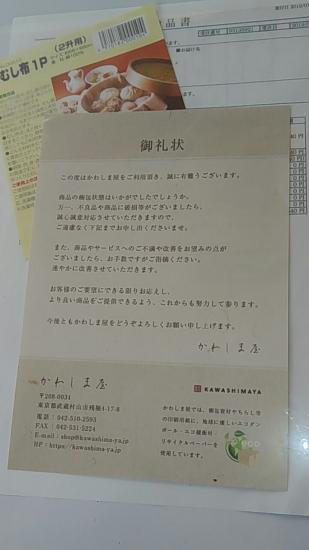 むし布1P
(2升用)
品書
御礼状
この度はかわしま屋をご利用頂き、誠に有難うございます。
商品の梱包状態はいかがでしたでしょうか。
万一、不良品や商品に破損等がございましたら、
誠心誠意対応させていただきますので、
ご遠慮なく下記までお申し出くださいませ。
また、商品やサービスへのご不満や改善をお望みの点が
ございましたら、お手数ですがご指摘ください。
速やかに改善させていただきます。
お客様のご要望にできる限りお応えし、
より良い商品をご提供できるよう、これからも努力して参ります。
今後ともかわしま屋をどうぞよろしくお願い申し上げます。
かわしま屋
かわしま屋
〒208-0034
東京都武蔵村山市残堀4-17-8
電話:042-510-2593
FAX:042-531-5224
E-mail:shop@kawashima-ya.jp
HP:https://kawashima-ya.jp
KAWASHIMAYA
かわしま屋では、梱包資材やちらし等
の印刷用紙に、地球に優しいエコダン
ボール・エコ緩衝材・
リサイクルペーパーを
使用しています。
eco